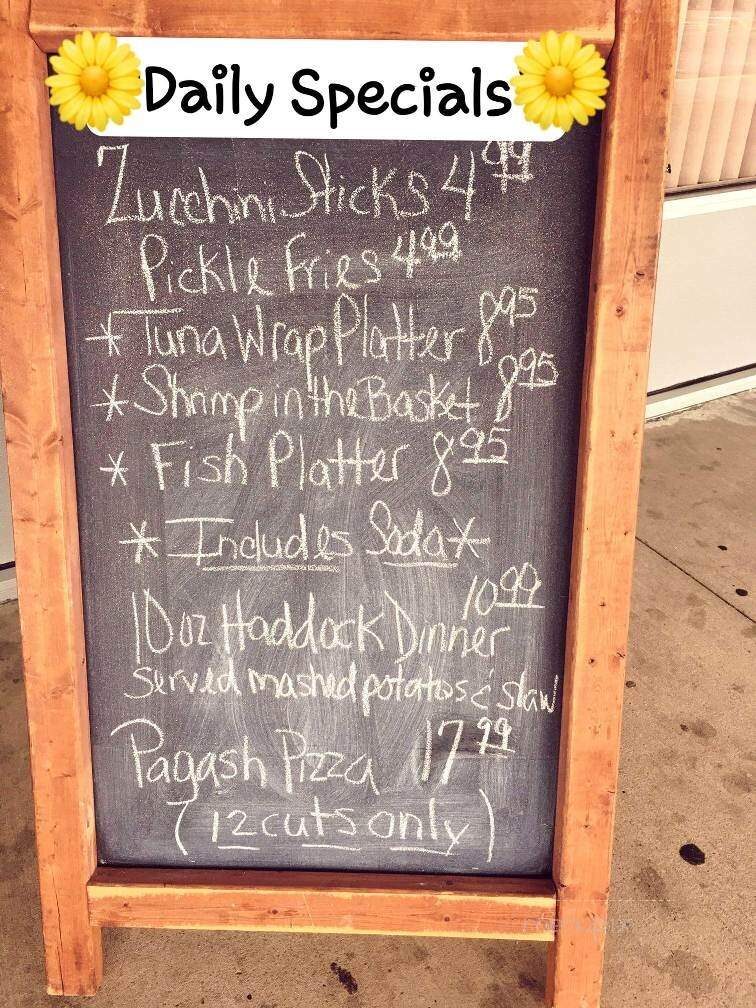 Daily Specials
Zucchini Sticks 4.99
Pickle Fries 4.99
* Tuna Wrap Platter 8.95
* Shrimp in the Basket 8.95
* Fish Platter 8.95
* Includes Soda *
10.99
10 oz Haddock Dinner
served mashed potatoes & slaw
Pagash Pizza 17.99
(12 cuts only)